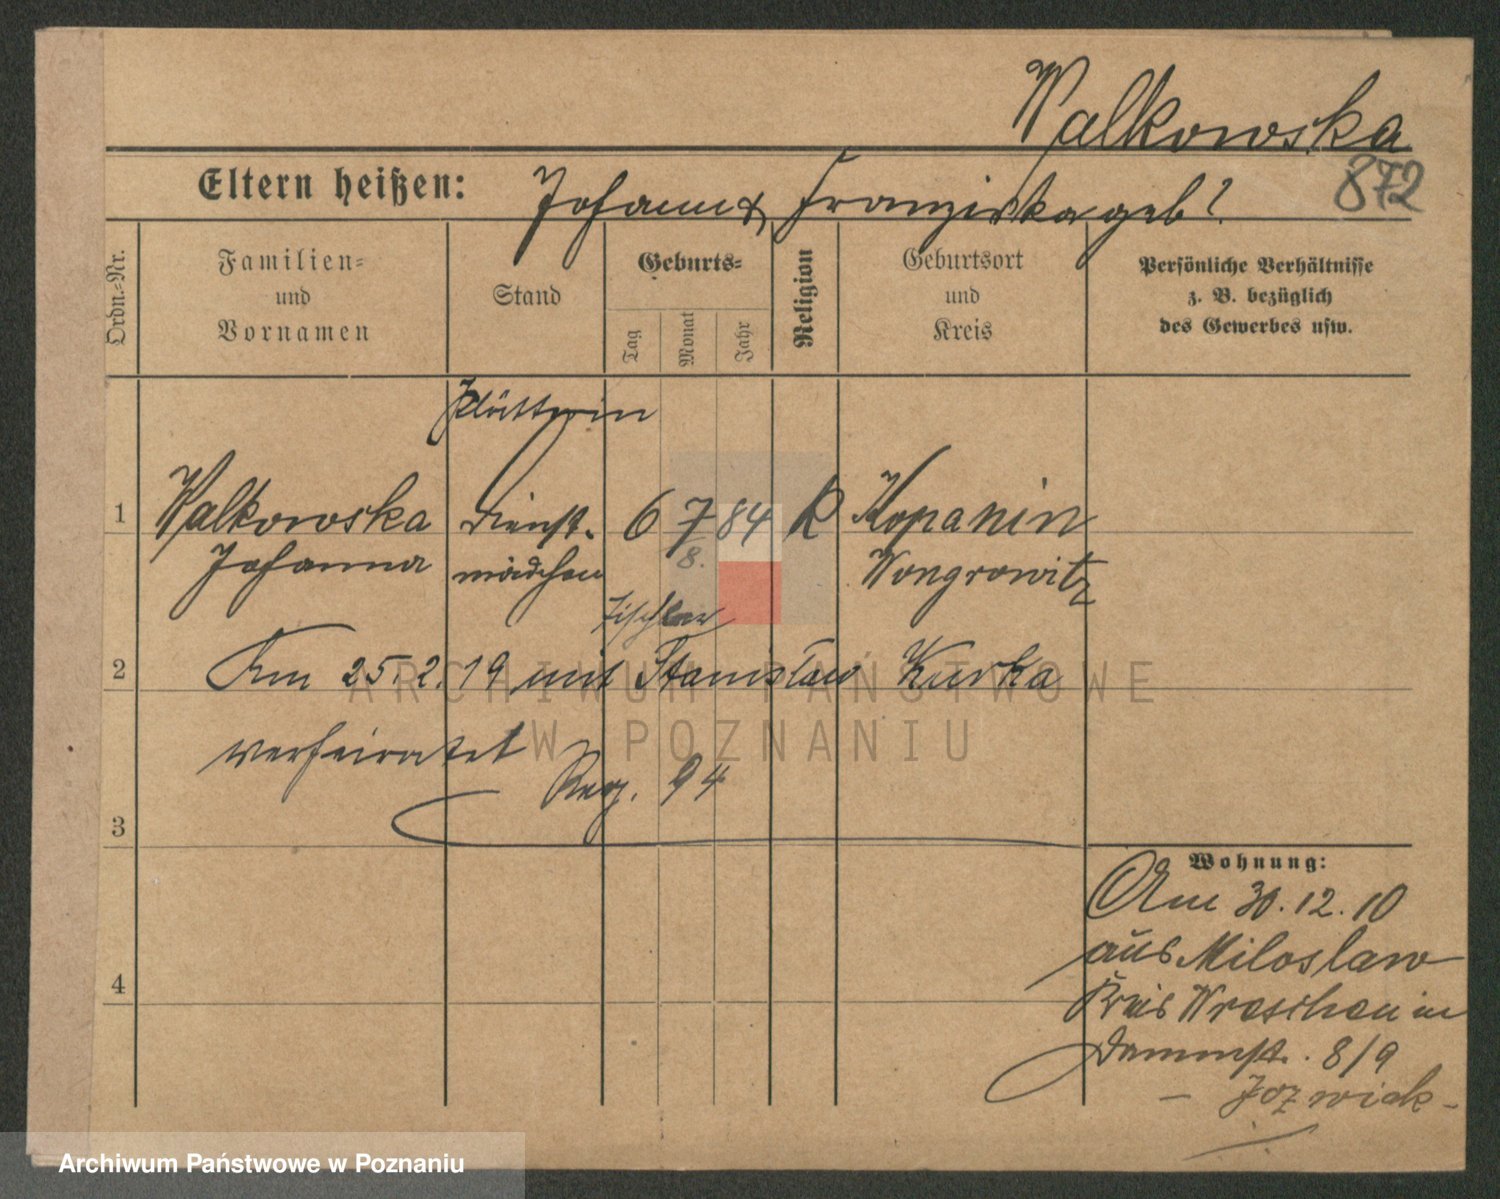 Walkowska
872
Eltern heißen: Johann & Franziska geb?
Ordn.-Nr.
Familien-
und
Vornamen
Stand
Geburts-
Tag
Monat
Jahr
Religion
Geburtsort
und
Kreis
Persönliche Verhältnisse
z. B. bezüglich
des Gewerbes usw.
Plätterin
1 Walkowska Dienst- 6 7 84 R Kopanin
Johanna mädchen 8. Wongrowitz
Tischler
2 Am 25.2.19 mit Stanisław Kurka
verheiratet
Reg. 94
3
Wohnung:
Am 30.12.10
aus Miloslaw
Kreis Wreschen in
4
Dammst. 8/9
- Jozwiak -
ARCHIWUM PAŃSTWOWE
W POZNANIU
Archiwum Państwowe w Poznaniu